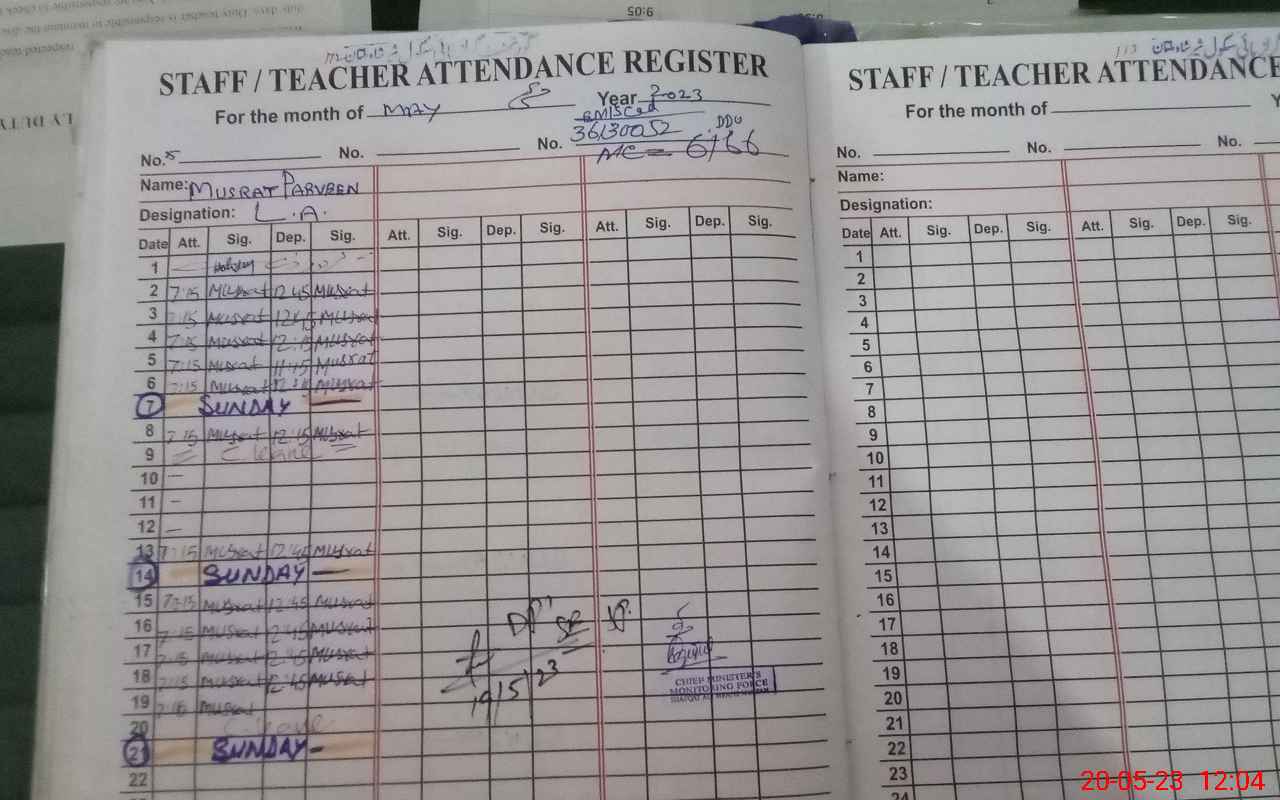 9:05
STAFF / TEACHER ATTENDANCE REGISTER
For the month of MAY Year 2023
EMIS Cod
36130052 DDO
No. 5 No. No. MC = 6166
Name: MUSRAT PARVEEN
Designation: L.A.
Date Att. Sig. Dep. Sig. Att. Sig. Dep. Sig. Att. Sig. Dep. Sig.
1 Holiday
2 7:15 Musrat 12:45 Musrat
3 7:15 Musrat 12:45 Musrat
4 7:15 Musrat 12:15 Musrat
5 7:15 Musrat 11:45 Musrat
6 7:15 Musrat Musrat
7 SUNDAY
8 7:15 Musrat 12:45 Musrat
9 C leave
10
11
12
13 7:15 Musrat 12:45 Musrat
14 SUNDAY
15 7:15 Musrat 12:45 Musrat
16 7:15 Musrat 12:45 Musrat
17 7:15 Musrat 12:45 Musrat
18 7:15 Musrat 12:45 Musrat
19 7:15 Musrat
20 C leave
21 SUNDAY
22
19/5/23
CHIEF MINISTER'S
MONITORING FORCE
STAFF / TEACHER ATTENDANCE
For the month of
No. No. No.
Name:
Designation:
Date Att. Sig. Dep. Sig. Att. Sig. Dep. Sig.
1
2
3
4
5
6
7
8
9
10
11
12
13
14
15
16
17
18
19
20
21
22
23
24
20-05-23 12:04